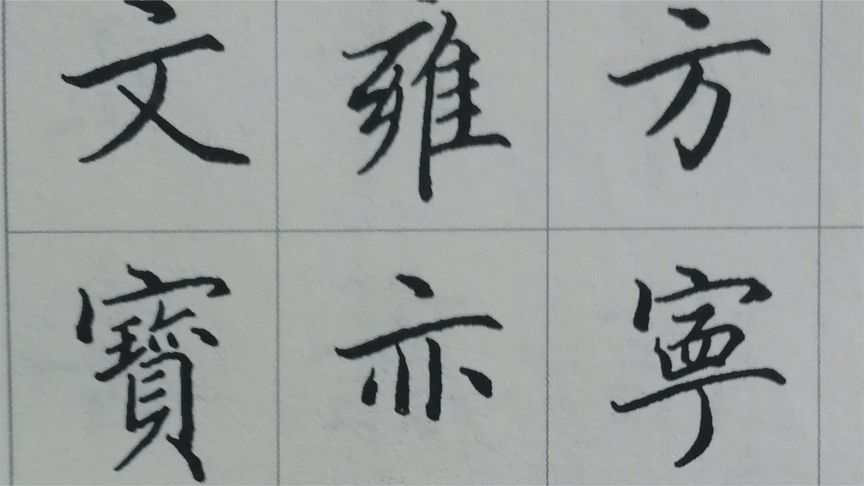 文雍方
寶亦寧